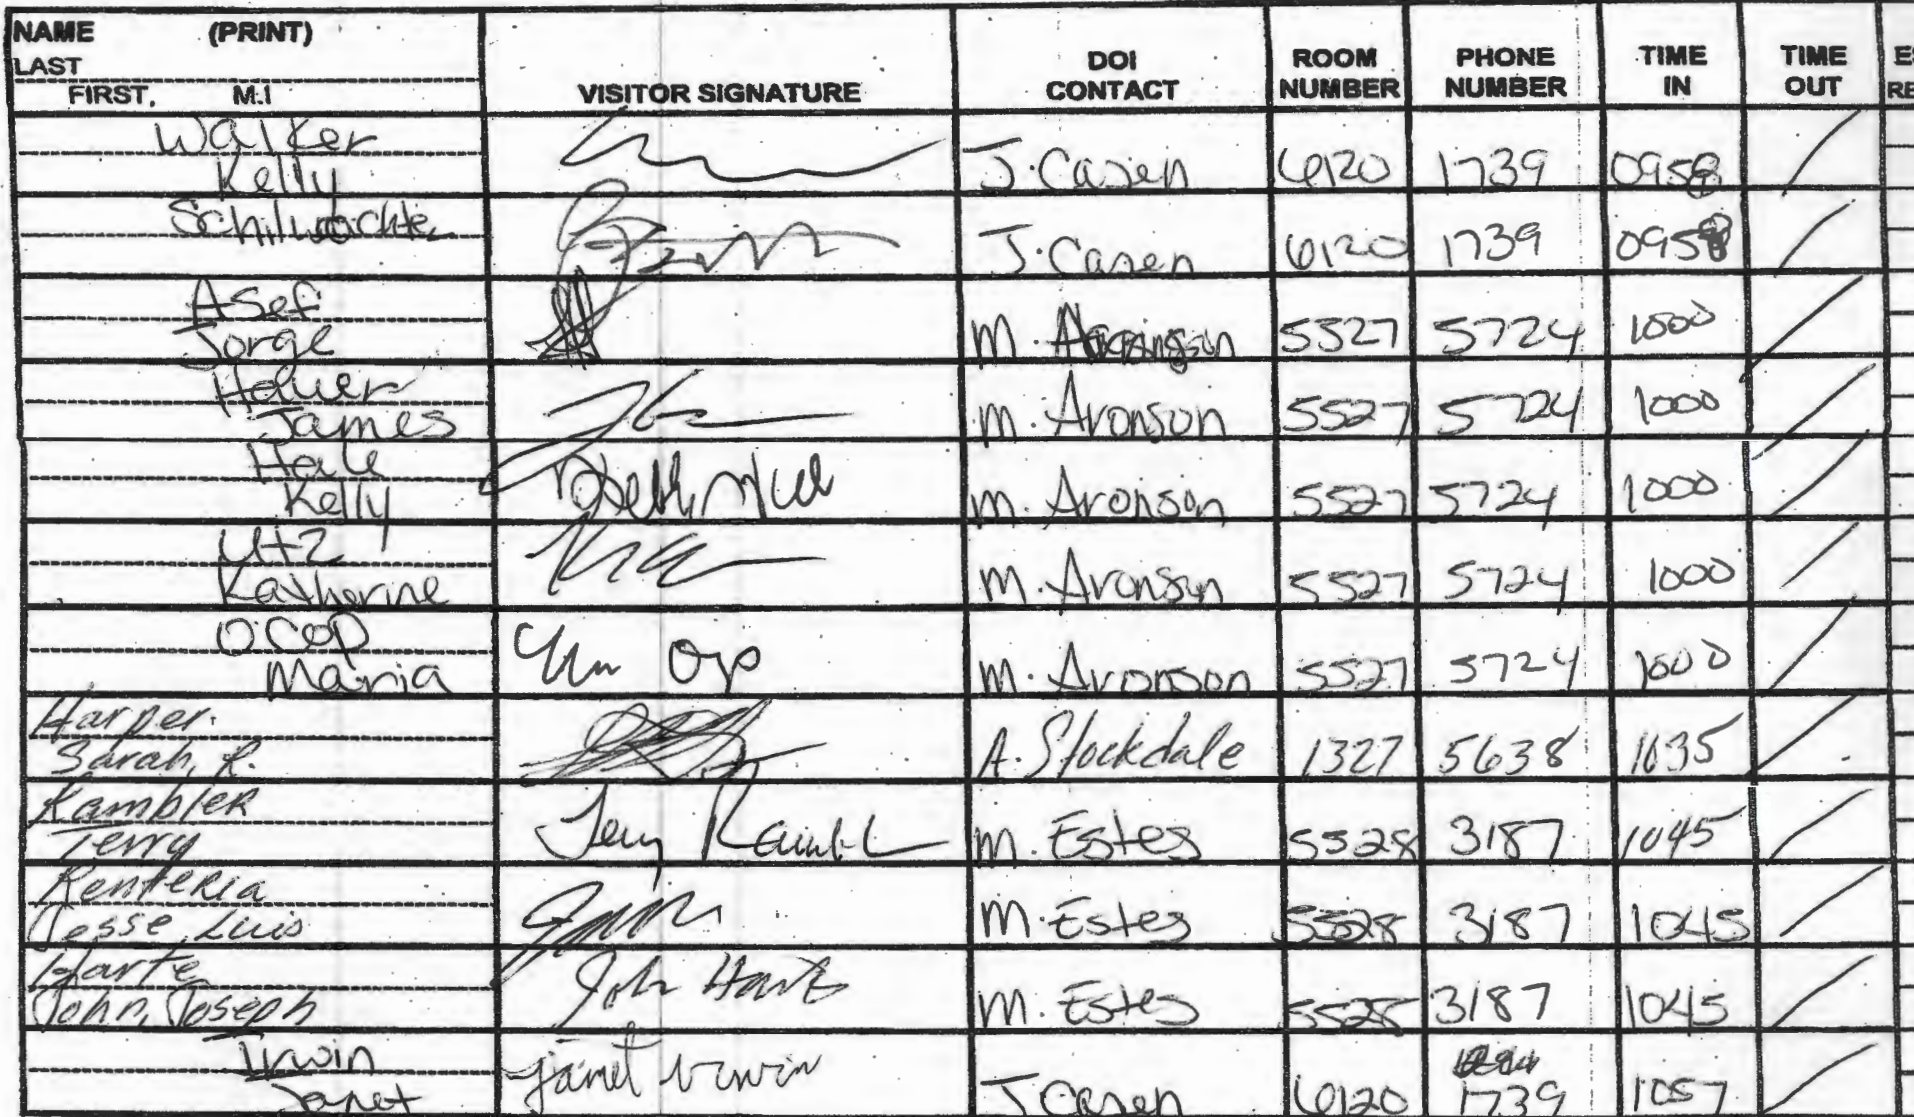 NAME (PRINT)
LAST
FIRST, M.I
VISITOR SIGNATURE
DOI CONTACT
ROOM NUMBER
PHONE NUMBER
TIME IN
TIME OUT
Walker
Kelly
J. Casen 6120 1739 0958
J. Casen 6120 1739 0958
Asef
Jorge
M. 5527 5724 1000
James
M. Aronson 5527 5724 1000
Kelly
M. Aronson 5527 5724 1000
Utz
Katherine
M. Aronson 5527 5724 1000
Ocop
Maria
M. Aronson 5527 5724 1000
Harper
Sarah, R.
A. Stockdale 1327 5638 1035
Kambler
Terry
Terry
M. Estes 5528 3187 1045
Renteria
Jesse Luis
M. Estes 5528 3187 1045
Harte
John, Joseph
John Harte
M. Estes 5528 3187 1045
Irwin
Janet
Janet Irwin
J Casen 6120 1739 1057